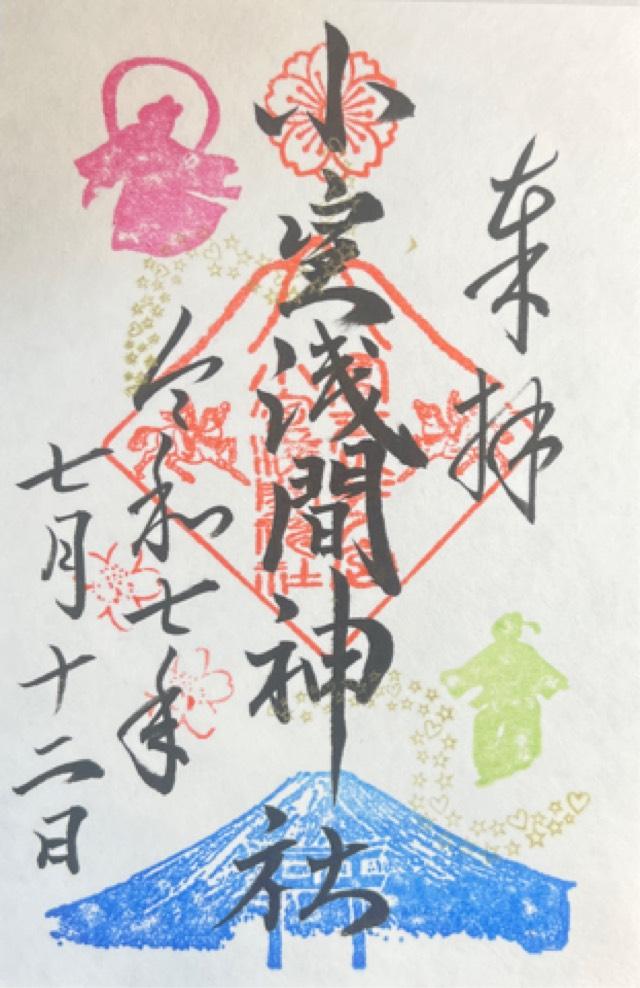 奉拝
小室浅間神社
令和七年
七月十二日